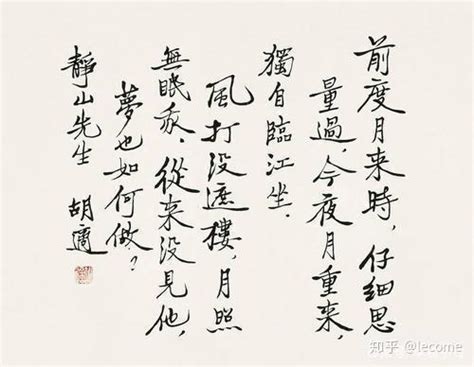 前度月来時，仔細思
量過，今夜月重来，
獨自臨江坐．
風打没遮樓，月照
無眠我，從来没見他，
夢也如何做？
靜山先生
胡適
知乎 @lecome